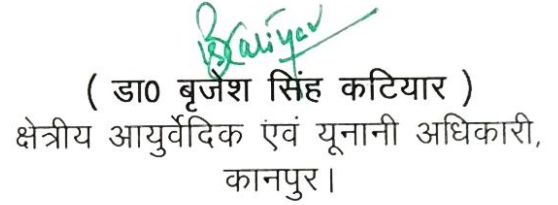 BKatiyar
( डा0 बृजेश सिंह कटियार )
क्षेत्रीय आयुर्वेदिक एंवं यूनानी अधिकारी,
कानपुर।